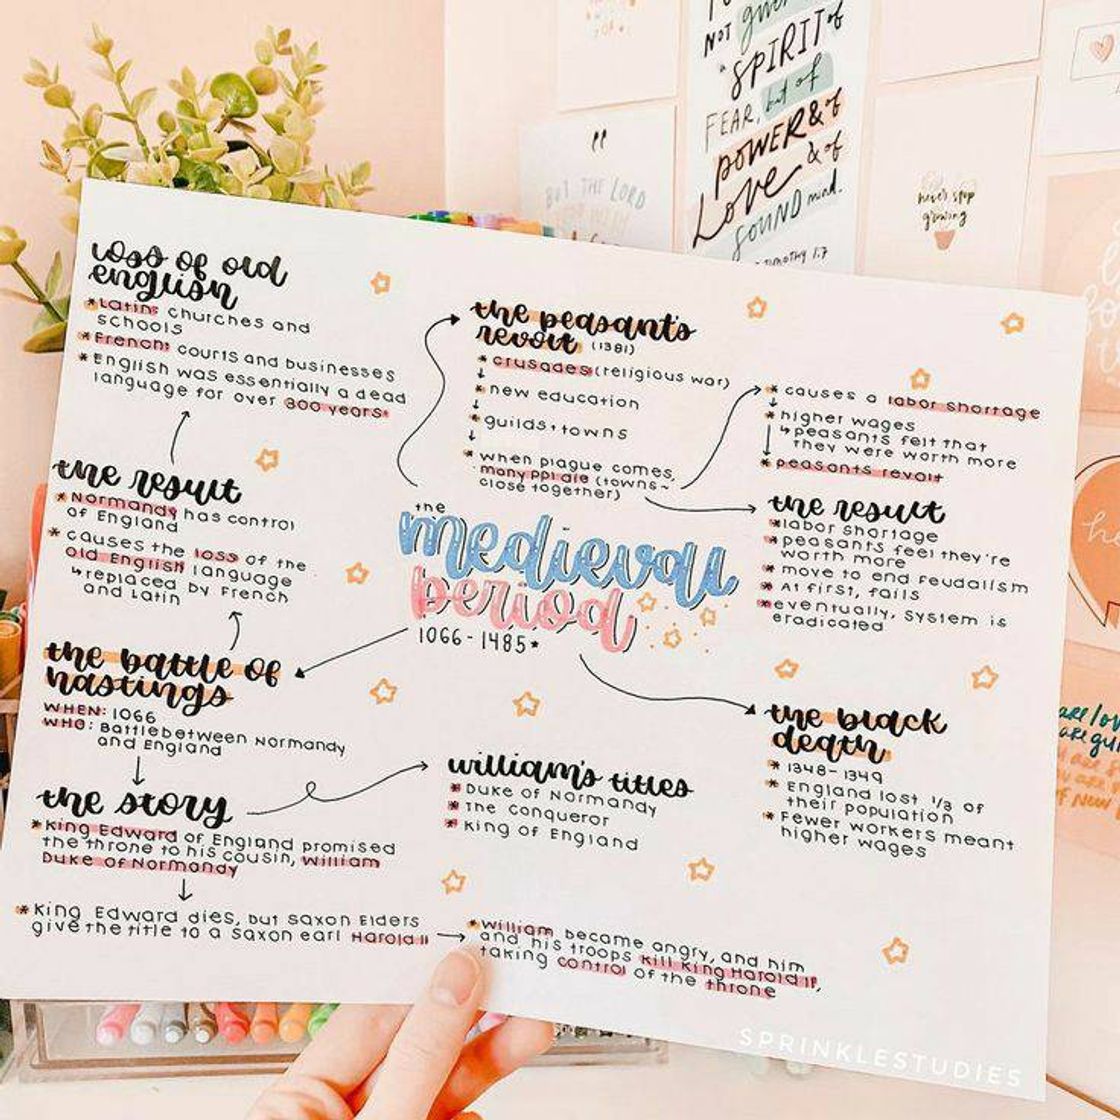 NOT
"SPIRIT of
FEAR, but of
POWER & of
LOVE & of
SOUND mind.
TIMOTHY 1:7
"
BUT THE LORD
never stop
growing
loss of old
english
*Latin: churches and
schools
*French: courts and businesses
*English was essentially a dead
language for over 300 years*
the result
*Normandy has control
of England
*causes the loss of the
old English language
↳replaced by French
and Latin
the battle of
hastings
WHEN: 1066
WHO: Battle between Normandy
and England
the story
*King Edward of England promised
the throne to his cousin, William
Duke of Normandy
*King Edward dies, but Saxon Elders
give the title to a Saxon earl Harold II
*William became angry, and him
and his troops kill King Harold II,
taking control of the throne
william's titles
*Duke of Normandy
*The Conqueror
*King of England
the
medieval
period
1066-1485*
the peasant's
revolt (1381)
*crusades (religious war)
*new education
*guilds+towns
*when plague comes,
many ppl die (towns~
close together)
*causes a labor shortage
*higher wages
↳peasants felt that
they were worth more
*peasants revolt
the result
*labor shortage
*peasants feel they're
worth more
*move to end feudalism
*At first, fails
*eventually, system is
eradicated
the black
death
*1348-1349
*England lost 1/3 of
their population
*Fewer workers meant
higher wages
SPRINKLESTUDIES